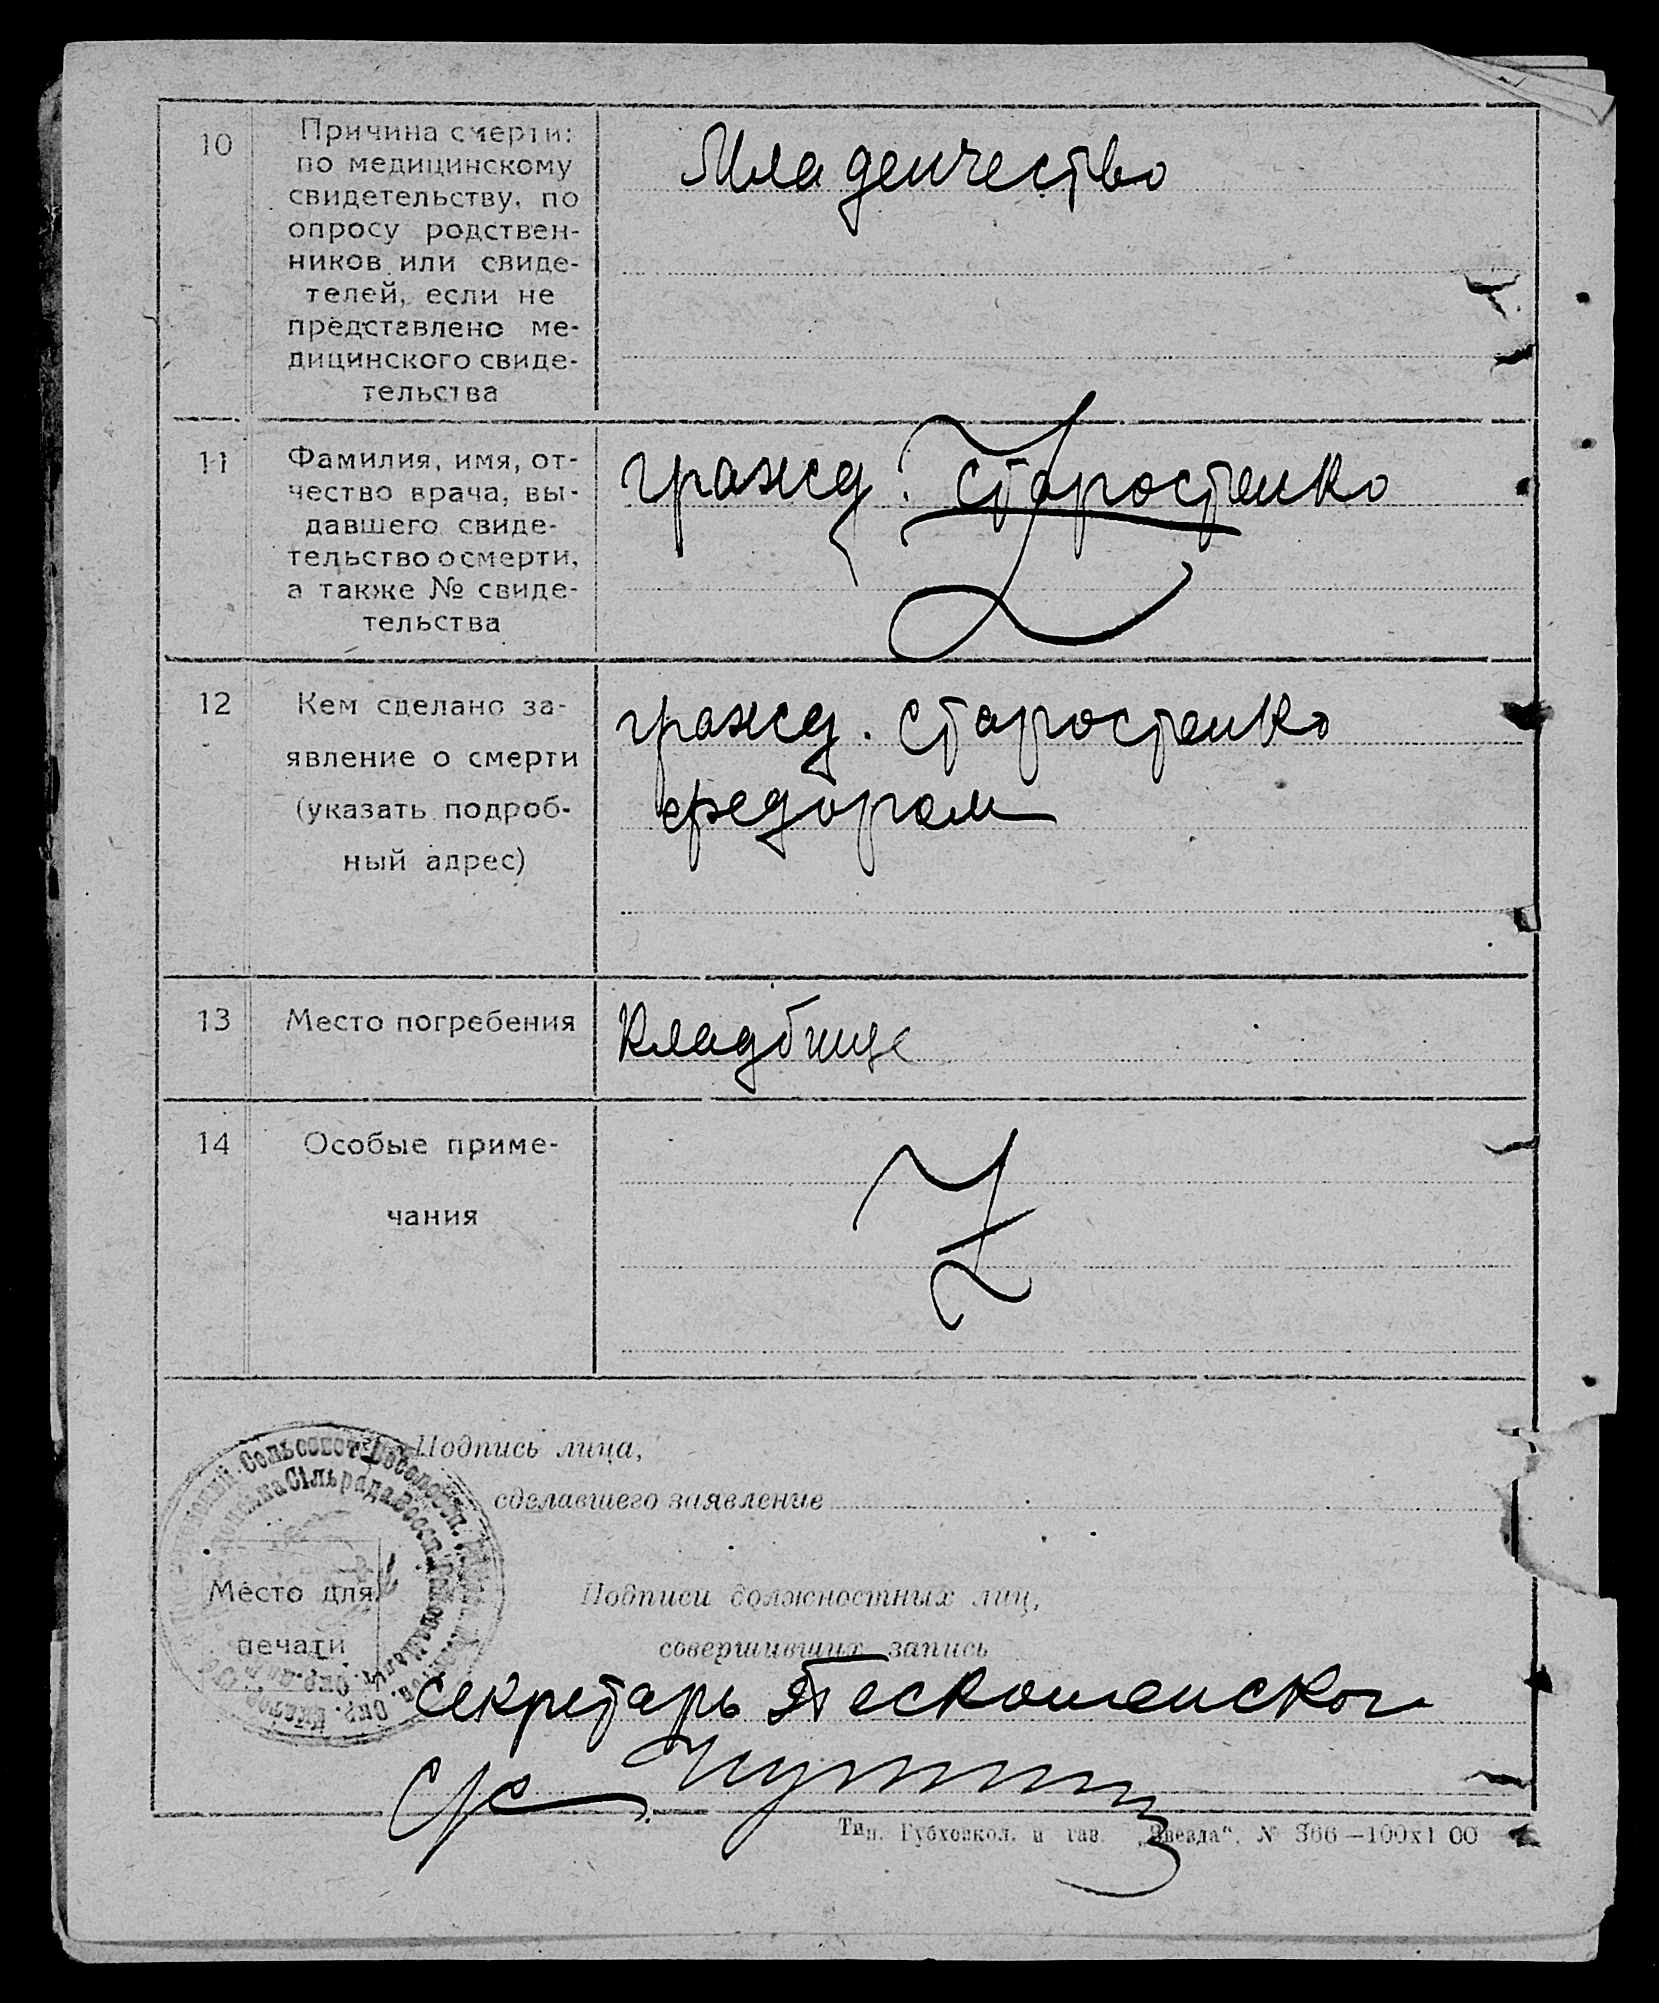 10
Причина смерти:
по медицинскому
свидетельству, по
опросу родствен-
ников или свиде-
телей, если не
представлено ме-
дицинского свиде-
тельства
Младенчество
11
Фамилия, имя, от-
чество врача, вы-
давшего свиде-
тельство о смерти,
а также № свиде-
тельства
гражд. Старостенко
12
Кем сделано за-
явление о смерти
(указать подроб-
ный адрес)
гражд. Старостенко
Федором
13
Место погребения
Кладбище
14
Особые приме-
чания
Подпись лица,
сделавшего заявление
Место для
печати
Подписи должностных лиц,
совершивших запись
Секретарь
Тип. Губхозкол. и газ. „Звезда“. №